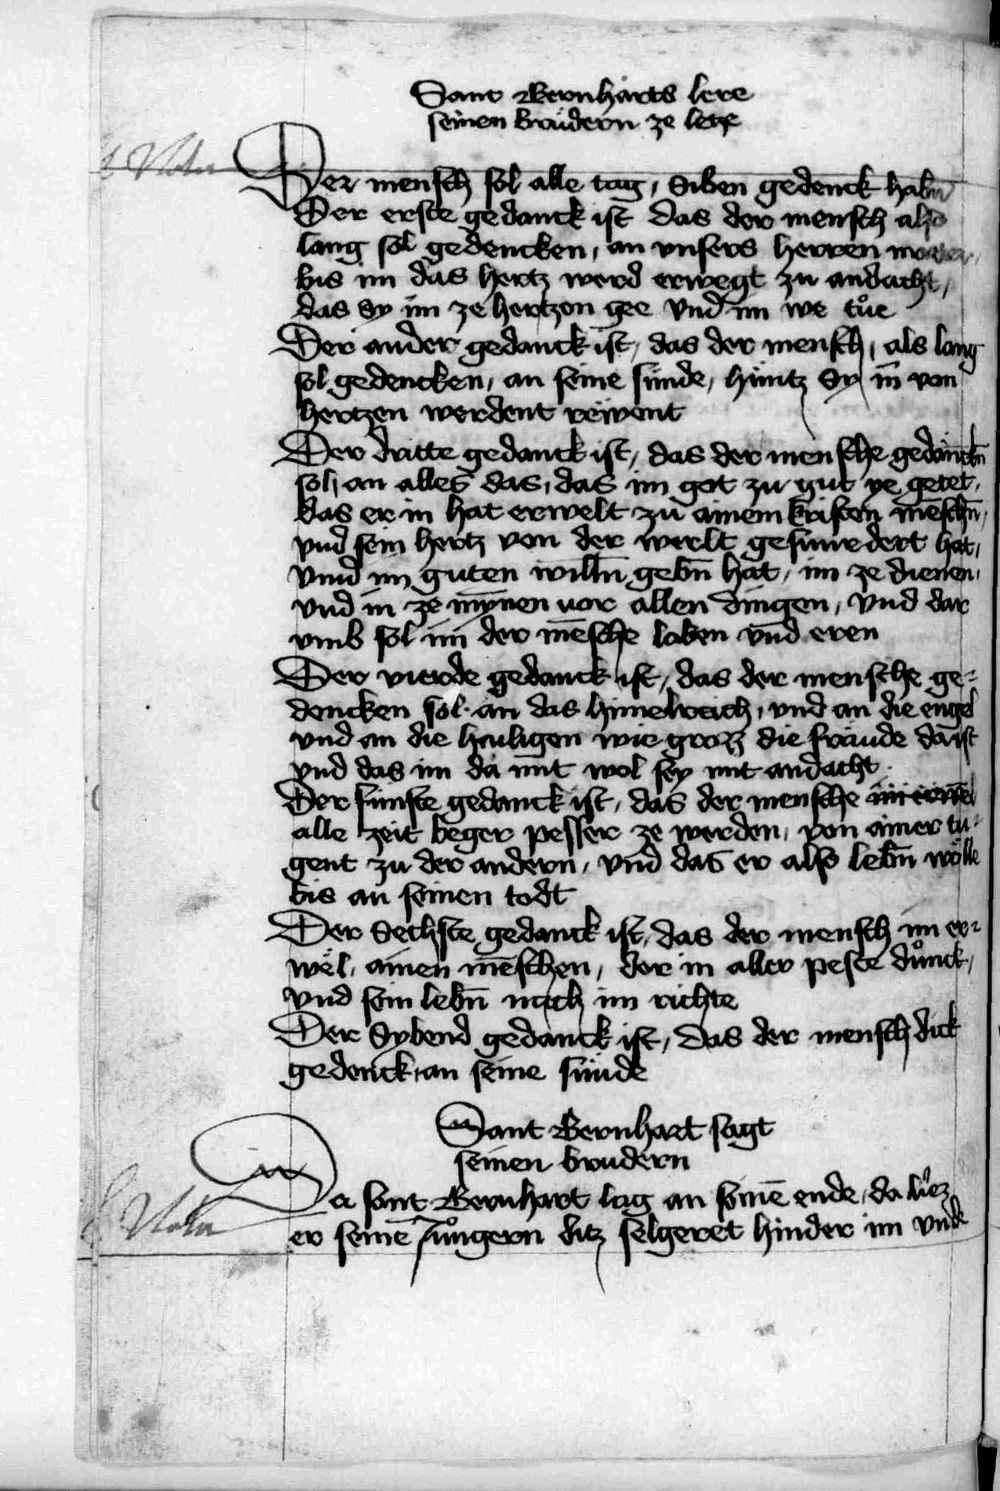 Sant Bernharts lere
seinen brüdern ze letze
Nota
Der mensch sol alle tag, siben gedenck habn̄
Der erste gedanck ist das der mensch also
lang sol gedencken, an vnsers herren marter,
bis im das hertz werd erwegt zu andacht,
das sy im ze hertzen gee vnd im we tůe
Der ander gedanck ist, das der mensch, als lang
sol gedencken, an seine sünde, hüntz sy in von
hertzen werdent rëwent
Der dritte gedanck ist, das der mensche gedänckn̄
sol, an alles das, das im got zu gut ye getet,
das er in hat erwelt zu ainem kristen mēschn̄,
vnd sein hertz von der werlt gesunedert hat,
vnnd im guten willn̄ gebn̄ hat, im ze dienen,
vnd in ze mȳnen vor allen dingen, vnd dar
vmb sol im der mēsche loben vnd eren
Der vierde gedanck ist, das der mensche ge-
dencken sol an das himelreich, vnd an die engel
vnd an die hailigen wie groß die fräude da ist
vnd das im da mit wol sey mit andacht
Der fünfte gedanck ist, das der mensche
alle zeit beger pesser ze werden, von ainer tu-
gent zu der andern, vnd das er also lebn̄ wölle
bis an seinen todt
Der Sechste gedanck ist, das der mensch im er-
wël, ainen mēschen, der in aller peste důnck,
vnd sein lebn̄ nach im richte
Der Sybend gedanck ist, das der mensch dick
gedenck an seine sünde
Sant Bernhart sagt
seinen brudern
Nota
Da sant Bernhart lag an seinē ende, da liez
er seinē Jůngern ditz selgeret hinder im vnde